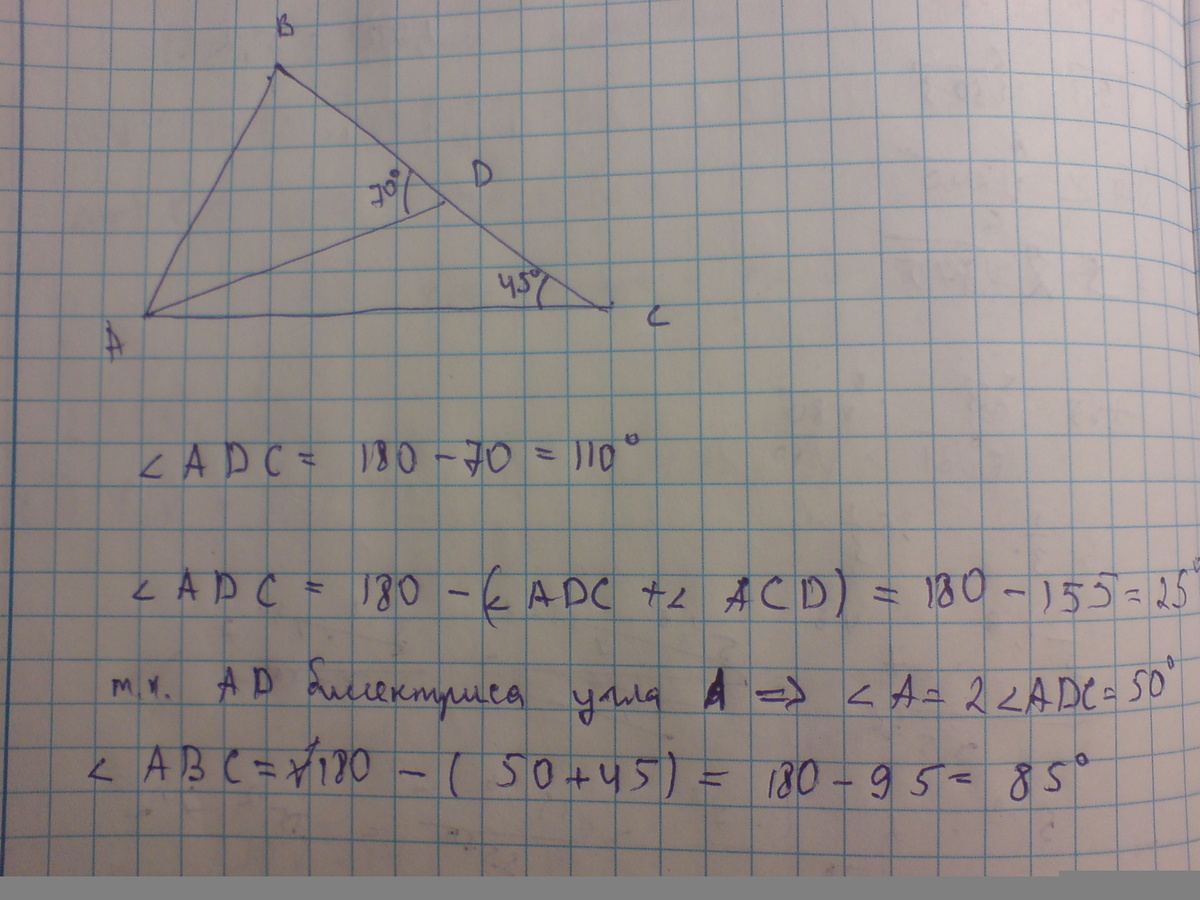 B
D
70°
45°
A
C
∠ ADC = 180 - 70 = 110°
∠ ADC = 180 - (∠ ADC + ∠ ACD) = 180 - 155 = 25°
т.к. AD биссектриса угла A => ∠ A = 2 ∠ADC = 50°
∠ ABC = 180 - ( 50 + 45 ) = 180 - 95 = 85°